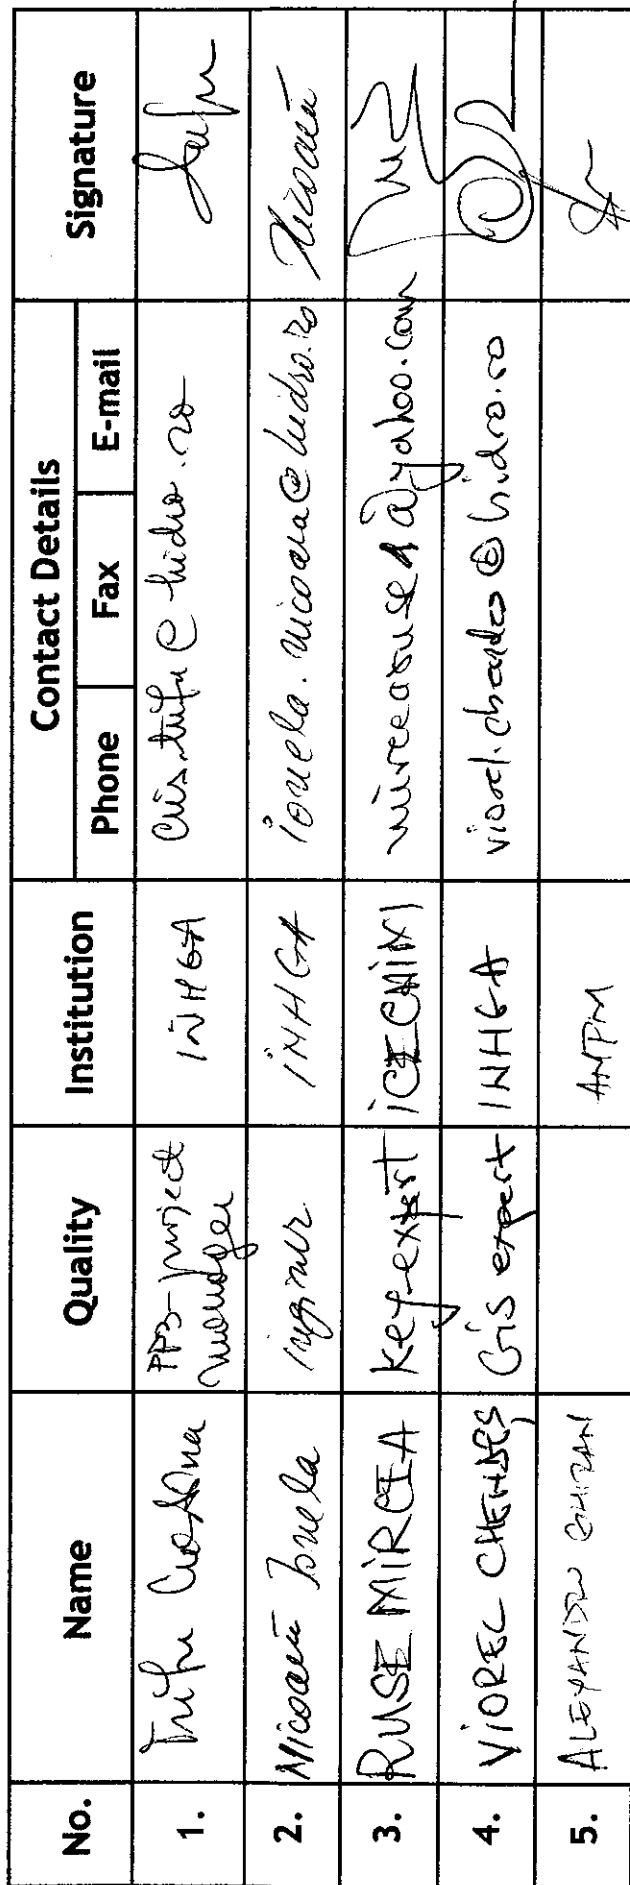 No. Name Quality Institution Contact Details Signature
Phone Fax E-mail
1. Trifu Cristina PP3-project manager INHGA cris.trifu@hidro.ro Trifu
2. Nicoară Ionela inginer INHGA ionela.nicoara@hidro.ro Nicoară
3. RUSE MIRCEA Key-expert ICECHIM mircearuse1@yahoo.com
4. VIOREL CHENDEȘ Gis expert INHGA viorel.chendes@hidro.ro
5. ALEXANDRU ANPM